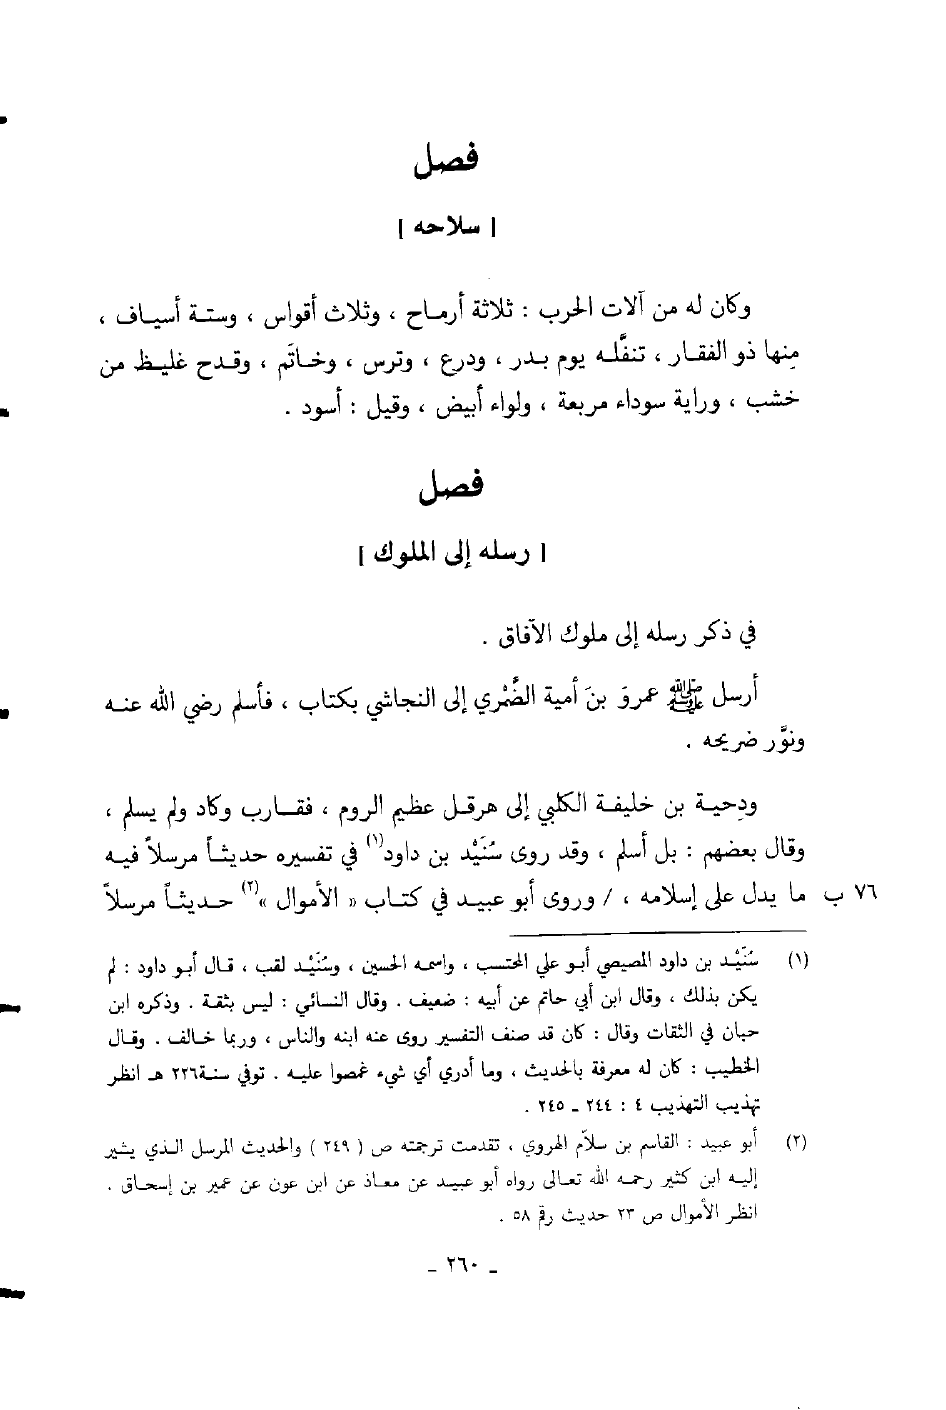 فصل
[ سلاحه ]
وكان له من آلات الحرب : ثلاثة أرماح ، وثلاث أقواس ، وستة أسياف ،
مِنها ذو الفقار ، تنفَّله يوم بدر ، ودرع ، وترس ، وخاتَم ، وقدح غليظ من
خشب ، وراية سوداء مربعة ، ولواء أبيض ، وقيل : أسود .
فصل
[ رسله إلى الملوك ]
في ذكر رسله إلى ملوك الآفاق .
أرسل ﷺ عمروَ بنَ أمية الضَّمْري إلى النجاشي بكتاب ، فأسلم رضي الله عنه
ونوَّر ضريحه .
ودِحية بن خليفة الكلبي إلى هرقل عظيم الروم ، فقارب وكاد ولم يسلم ،
وقال بعضهم : بل أسلم ، وقد روى سُنَيْد بن داود(١) في تفسيره حديثاً مرسلاً فيه
٧٦ ب ما يدل على إسلامه ، / وروى أبو عبيد في كتاب « الأموال »(٢) حديثاً مرسلاً
(١) سُنَيْد بن داود المصيصي أبو علي المحتسب ، واسمه الحسين ، وسُنَيْد لقب ، قال أبو داود : لم
يكن بذلك ، وقال ابن أبي حاتم عن أبيه : ضعيف . وقال النسائي : ليس بثقة . وذكره ابن
حبان في الثقات وقال : كان قد صنف التفسير روى عنه ابنه والناس ، وربما خالف . وقال
الخطيب : كان له معرفة بالحديث ، وما أدري أي شيء غمصوا عليه . توفي سنة ٢٢٦ هـ انظر
تهذيب التهذيب ٤ : ٢٤٤ ـ ٢٤٥ .
(٢) أبو عبيد : القاسم بن سلاّم الهروي ، تقدمت ترجمته ص ( ٢٤٩ ) والحديث المرسل الذي يشير
إليه ابن كثير رحمه الله تعالى رواه أبو عبيد عن معاذ عن ابن عون عن عمير بن إسحاق .
انظر الأموال ص ٢٣ حديث رقم ٥٨ .
ـ ٢٦٠ ـ